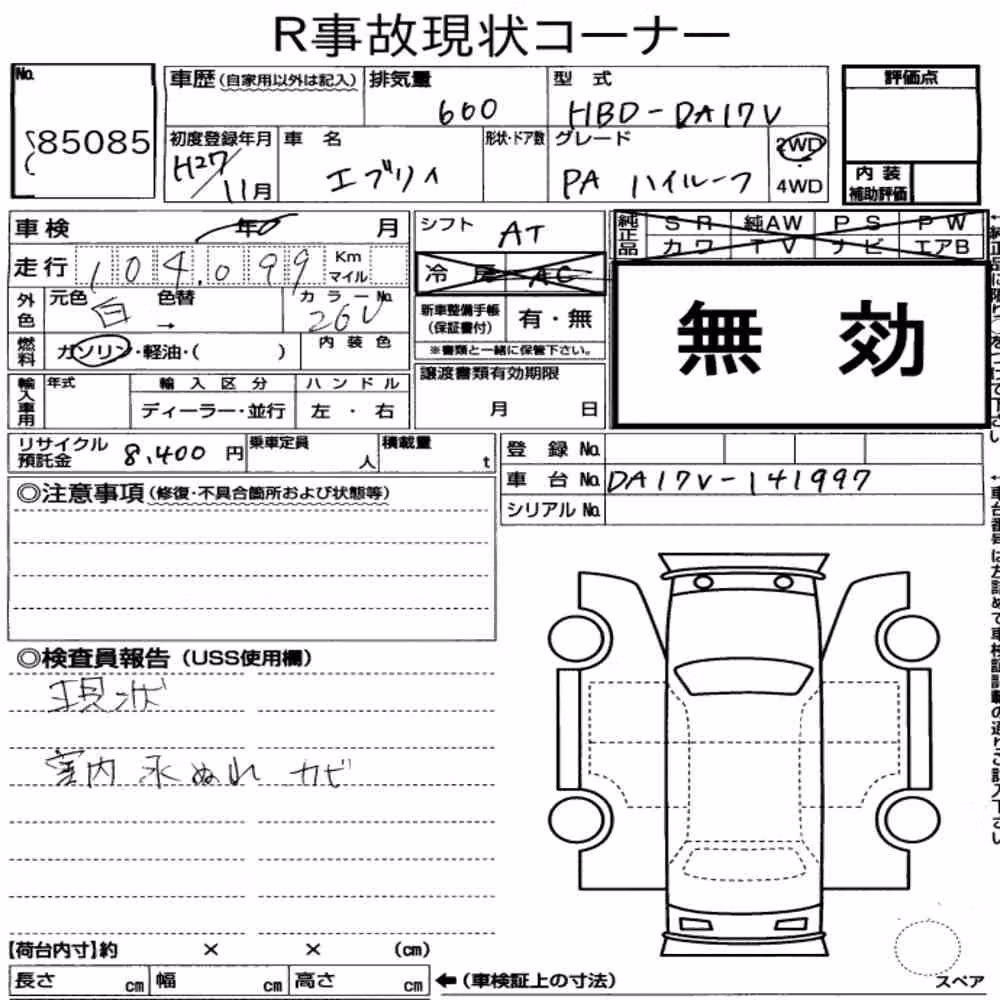 R事故現状コーナー
No. 85085
車歴(自家用以外は記入)
排気量 600
型式 HBD-DA17V
評価点
初度登録年月 H27/11月
車名 エブリィ
形状・ドア数
グレード PA ハイルーフ
2WD
4WD
内装補助評価
車検 年 月
シフト AT
純正品 SR 純AW PS PW
カワ TV ナビ エアB
走行 104,099 Km マイル
冷房 AC
無効
外色 元色 白 色替 → カラーNo. 26U
新車整備手帳(保証書付) 有・無
※書類と一緒に保管下さい。
燃料 ガソリン・軽油・( )
内装色
輸入車用 年式 輸入区分 ハンドル
ディーラー・並行 左・右
譲渡書類有効期限
月 日
リサイクル預託金 8,400円
乗車定員 人
積載量 t
登録No.
車台No. DA17V-141997
シリアルNo.
◎注意事項(修復・不具合箇所および状態等)
◎検査員報告(USS使用欄)
現状
室内 水ぬれ カビ
【荷台内寸】約 × × (cm)
長さ cm 幅 cm 高さ cm
←(車検証上の寸法)
スペア